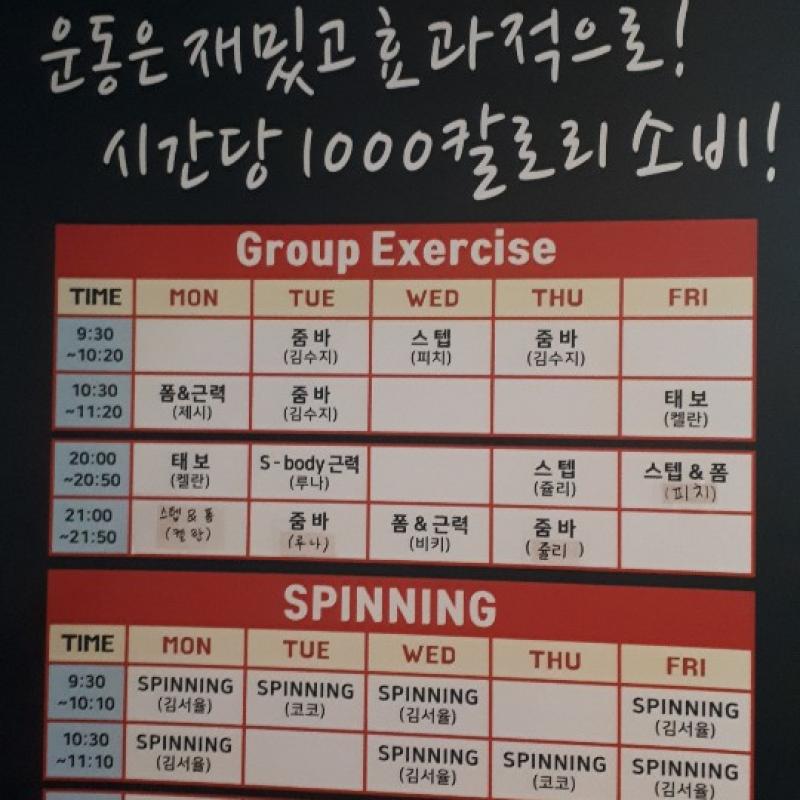 운동은 재밌고 효과적으로!
시간당 1000칼로리 소비!
Group Exercise
TIME MON TUE WED THU FRI
9:30 ~10:20 줌바 (김수지) 스텝 (피치) 줌바 (김수지)
10:30 ~11:20 폼&근력 (제시) 줌바 (김수지) 태보 (켈란)
20:00 ~20:50 태보 (켈란) S-body근력 (루나) 스텝 (쥴리) 스텝 & 폼 (피치)
21:00 ~21:50 스텝 & 폼 (켈란) 줌바 (루나) 폼 & 근력 (비키) 줌바 (쥴리)
SPINNING
TIME MON TUE WED THU FRI
9:30 ~10:10 SPINNING (김서율) SPINNING (코코) SPINNING (김서율) SPINNING (김서율)
10:30 ~11:10 SPINNING (김서율) SPINNING (김서율) SPINNING (코코) SPINNING (김서율)